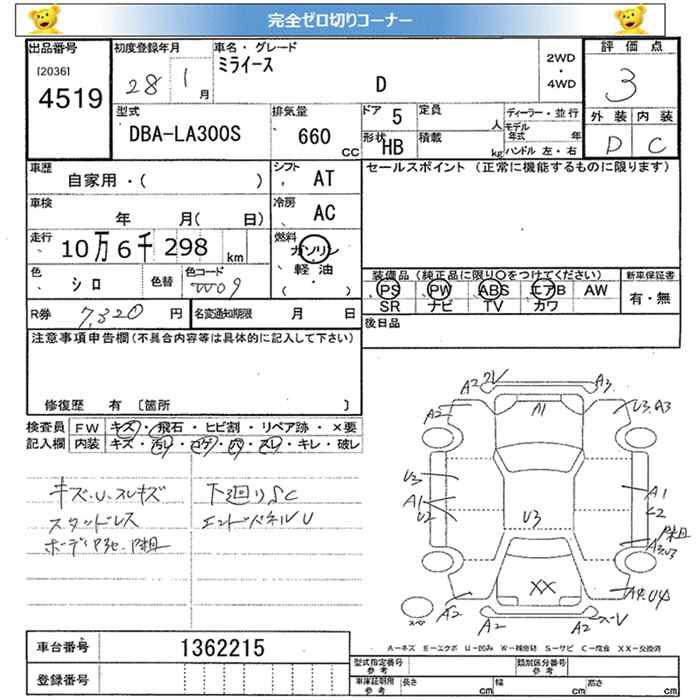 完全ゼロ切りコーナー
出品番号
[2036]
4519
初度登録年月
28 1 月
車名・グレード
ミライース
D
2WD
・
4WD
評価点
3
外装 内装
D C
型式
DBA-LA300S
排気量
660 CC
ドア 5
形状 HB
定員 人
積載 kg
ディーラー・並行
モデル年式 年
ハンドル 左・右
車歴
自家用・( )
シフト AT
車検
年 月( 日)
冷房 AC
走行
10万6千298 km
燃料
ガソリン
軽油
( )
色
シロ
色替
色コード
W09
R券 7,320 円
名変通知期限 月 日
セールスポイント (正常に機能するものに限ります)
装備品 (純正品に限り○をつけてください)
PS PW ABS エアB AW
SR ナビ TV カワ
新車保証書
有・無
後日品
注意事項申告欄(不具合内容等は具体的に記入して下さい)
修復歴 有 〔箇所 〕
検査員記入欄
FW キズ・飛石・ヒビ割・リペア跡・×要
内装 キズ・汚レ・コゲ・穴・スレ・キレ・破レ
キズ・U・スレキズ
スタッドレス
下廻りSC
エンドパネルU
A2
A3
A2
A1
U3.A3
U3
A1
U2
U3
A1
XX
A2
A2
A2
車台番号 1362215
登録番号
A-キズ E-エクボ U-凹み W-補修跡 S-サビ C-腐食 XX-交換済
型式指定番号
参考
類別区分番号
参考
車庫証明用
参考
長さ cm 幅 cm 高さ cm